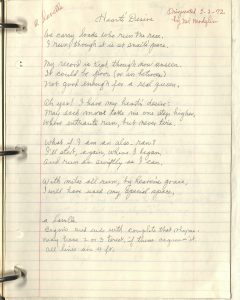 a Lorella
Hearts Desire
Originated 2-2-92
by
We carry loads who run the race,
I run, though it is at snails pace.
My record is kept, though now unseen
It could be poor, (or in between)
Not good enough for a real queen,
Oh yes! I have my hearts desire:
May each mount take me one day higher,
When entrants run, but never tire!
What if I am an also-ran?
I'll start, again, where I began
And run as swiftly as I can,
With miles all run, by heavens grace,
I will have used my special space,
a Lorella
Begins and ends with couplet that rhymes.
may have 2 or 3 tercet, if three
all lines are 4 ft.